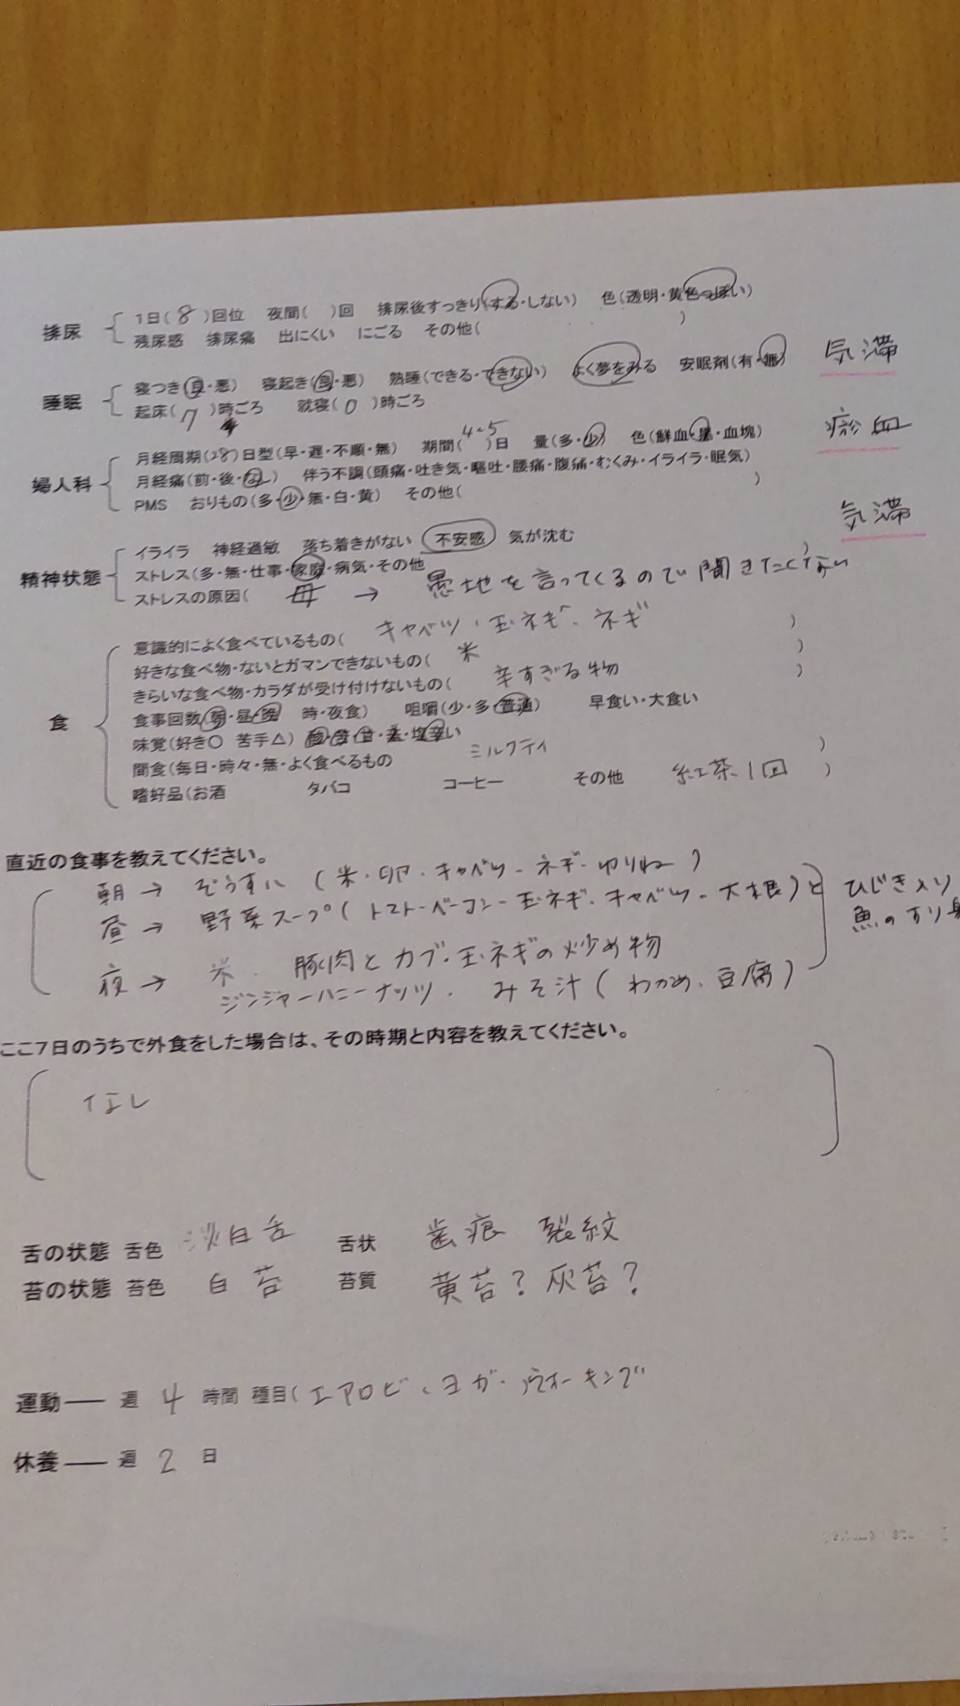 排尿 1日(8)回位 夜間( )回 排尿後すっきり(する・しない) 色(透明・黄色っぽい)
残尿感 排尿痛 出にくい にごる その他( )
睡眠 寝つき(良・悪) 寝起き(良・悪) 熟睡(できる・できない) よく夢をみる 安眠剤(有・無) 気滞
起床(7)時ごろ 就寝(0)時ごろ
婦人科 月経周期(28)日型(早・遅・不順・無) 期間(4~5)日 量(多・少) 色(鮮血・黒・血塊) 瘀血
月経痛(前・後・なし) 伴う不調(頭痛・吐き気・嘔吐・腰痛・腹痛・むくみ・イライラ・眠気)
PMS おりもの(多・少・無・白・黄) その他( )
精神状態 イライラ 神経過敏 落ち着きがない 不安感 気が沈む 気滞
ストレス(多・無・仕事・家庭・病気・その他 )
ストレスの原因( 母 → 愚地を言ってくるので聞きたくない
食 意識的によく食べているもの( キャベツ、玉ネギ、ネギ )
好きな食べ物・ないとガマンできないもの( 米 )
きらいな食べ物・カラダが受け付けないもの( 辛すぎる物 )
食事回数(朝・昼・晩 時・夜食) 咀嚼(少・多・普通) 早食い・大食い
味覚(好き○ 苦手△) 酸・苦・甘・辛・塩辛い
間食(毎日・時々・無・よく食べるもの ミルクティ )
嗜好品(お酒 タバコ コーヒー その他 紅茶1回 )
直近の食事を教えてください。
朝 → ぞうすい (米・卵・キャベツ・ネギ・ゆりね)
昼 → 野菜スープ(トマト・ベーコン・玉ネギ・キャベツ・大根)と ひじき入り
魚のすり身
夜 → 米、豚肉とカブ・玉ネギの炒め物
ジンジャーハニーナッツ、みそ汁(わかめ、豆腐)
ここ7日のうちで外食をした場合は、その時期と内容を教えてください。
なし
舌の状態 舌色 淡白舌 舌状 歯痕 裂紋
苔の状態 苔色 白苔 苔質 黄苔? 灰苔?
運動―― 週 4 時間 種目(エアロビ、ヨガ、ウォーキング
休養―― 週 2 日